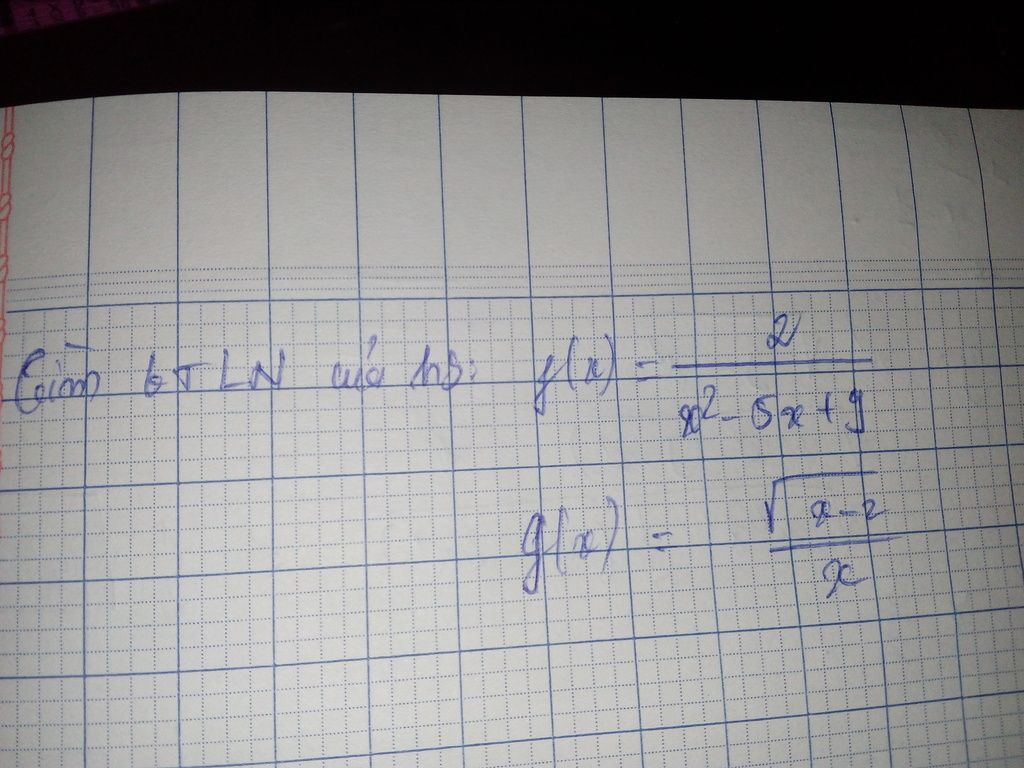 Tìm GTLN của hs: f(x) = 2 / (x² - 5x + 9)
g(x) = √(x-2) / x